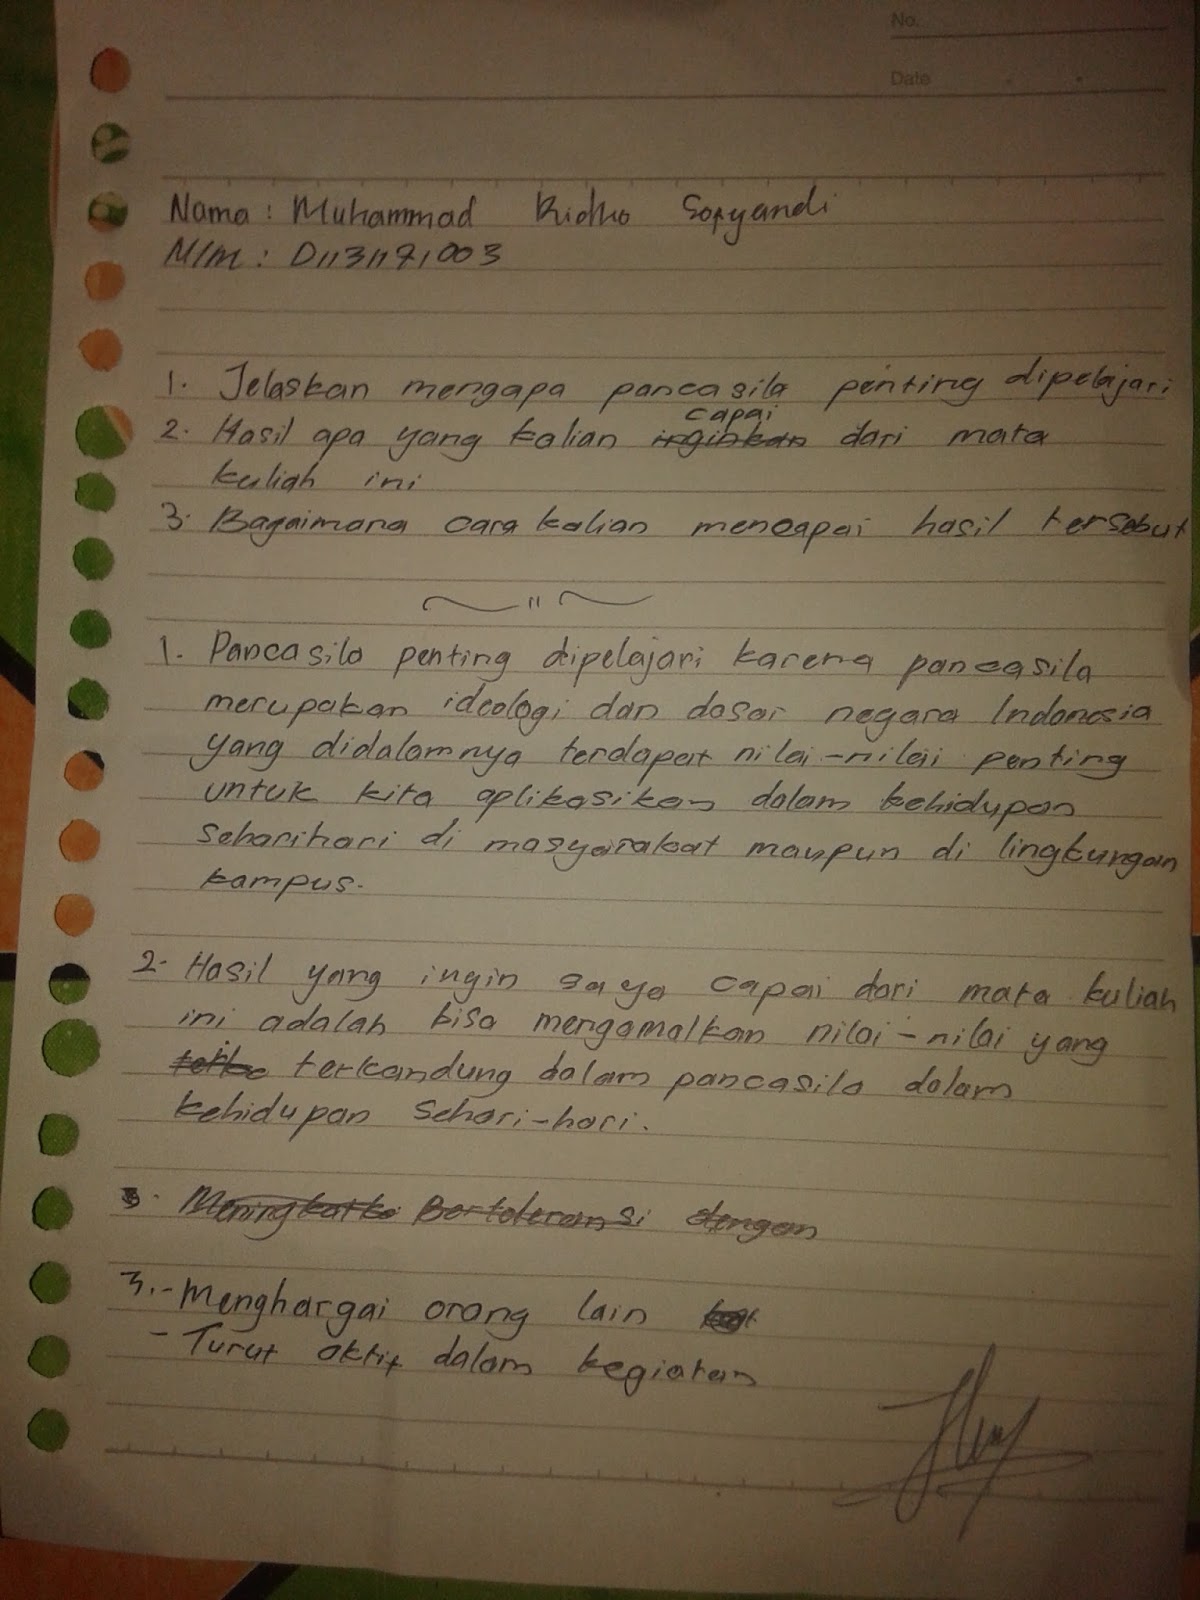 No.
Date
Nama : Muhammad Ridho Sopyandi
NIM : D1131171003
1. Jelaskan mengapa pancasila penting dipelajari
capai
2. Hasil apa yang kalian inginkan dari mata
kuliah ini
3. Bagaimana cara kalian mencapai hasil tersebut
1. Pancasila penting dipelajari karena pancasila
merupakan ideologi dan dasar negara Indonesia
yang didalamnya terdapat nilai-nilai penting
untuk kita aplikasikan dalam kehidupan
seharihari di masyarakat maupun di lingkungan
kampus.
2. Hasil yang ingin saya capai dari mata kuliah
ini adalah bisa mengamalkan nilai-nilai yang
terkandung dalam pancasila dalam
kehidupan sehari-hari.
3. Meningkatka Bertoleransi dengan
3. - Menghargai orang lain
- Turut aktif dalam kegiatan